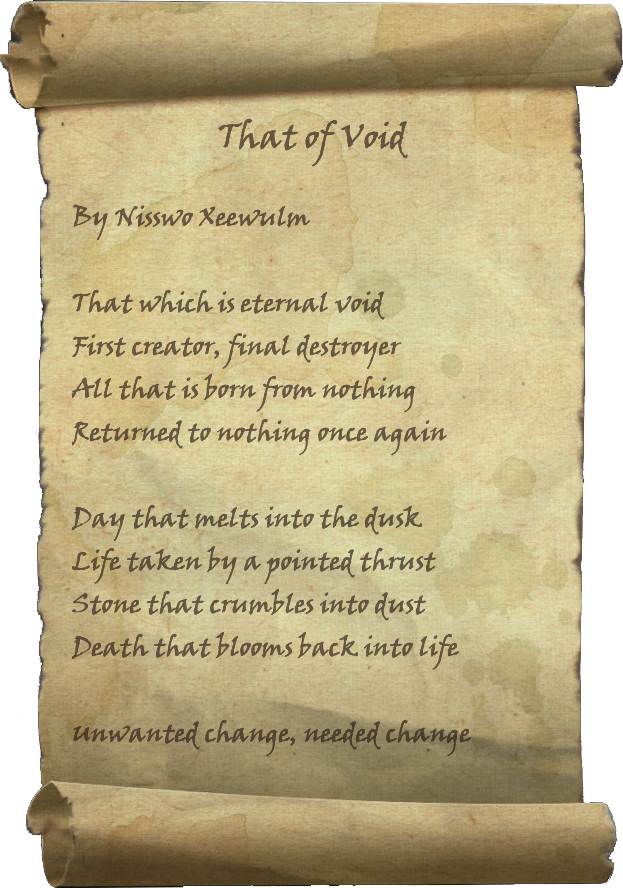 That of Void
By Nisswo Xeewulm
That which is eternal void
First creator, final destroyer
All that is born from nothing
Returned to nothing once again
Day that melts into the dusk
Life taken by a pointed thrust
Stone that crumbles into dust
Death that blooms back into life
Unwanted change, needed change